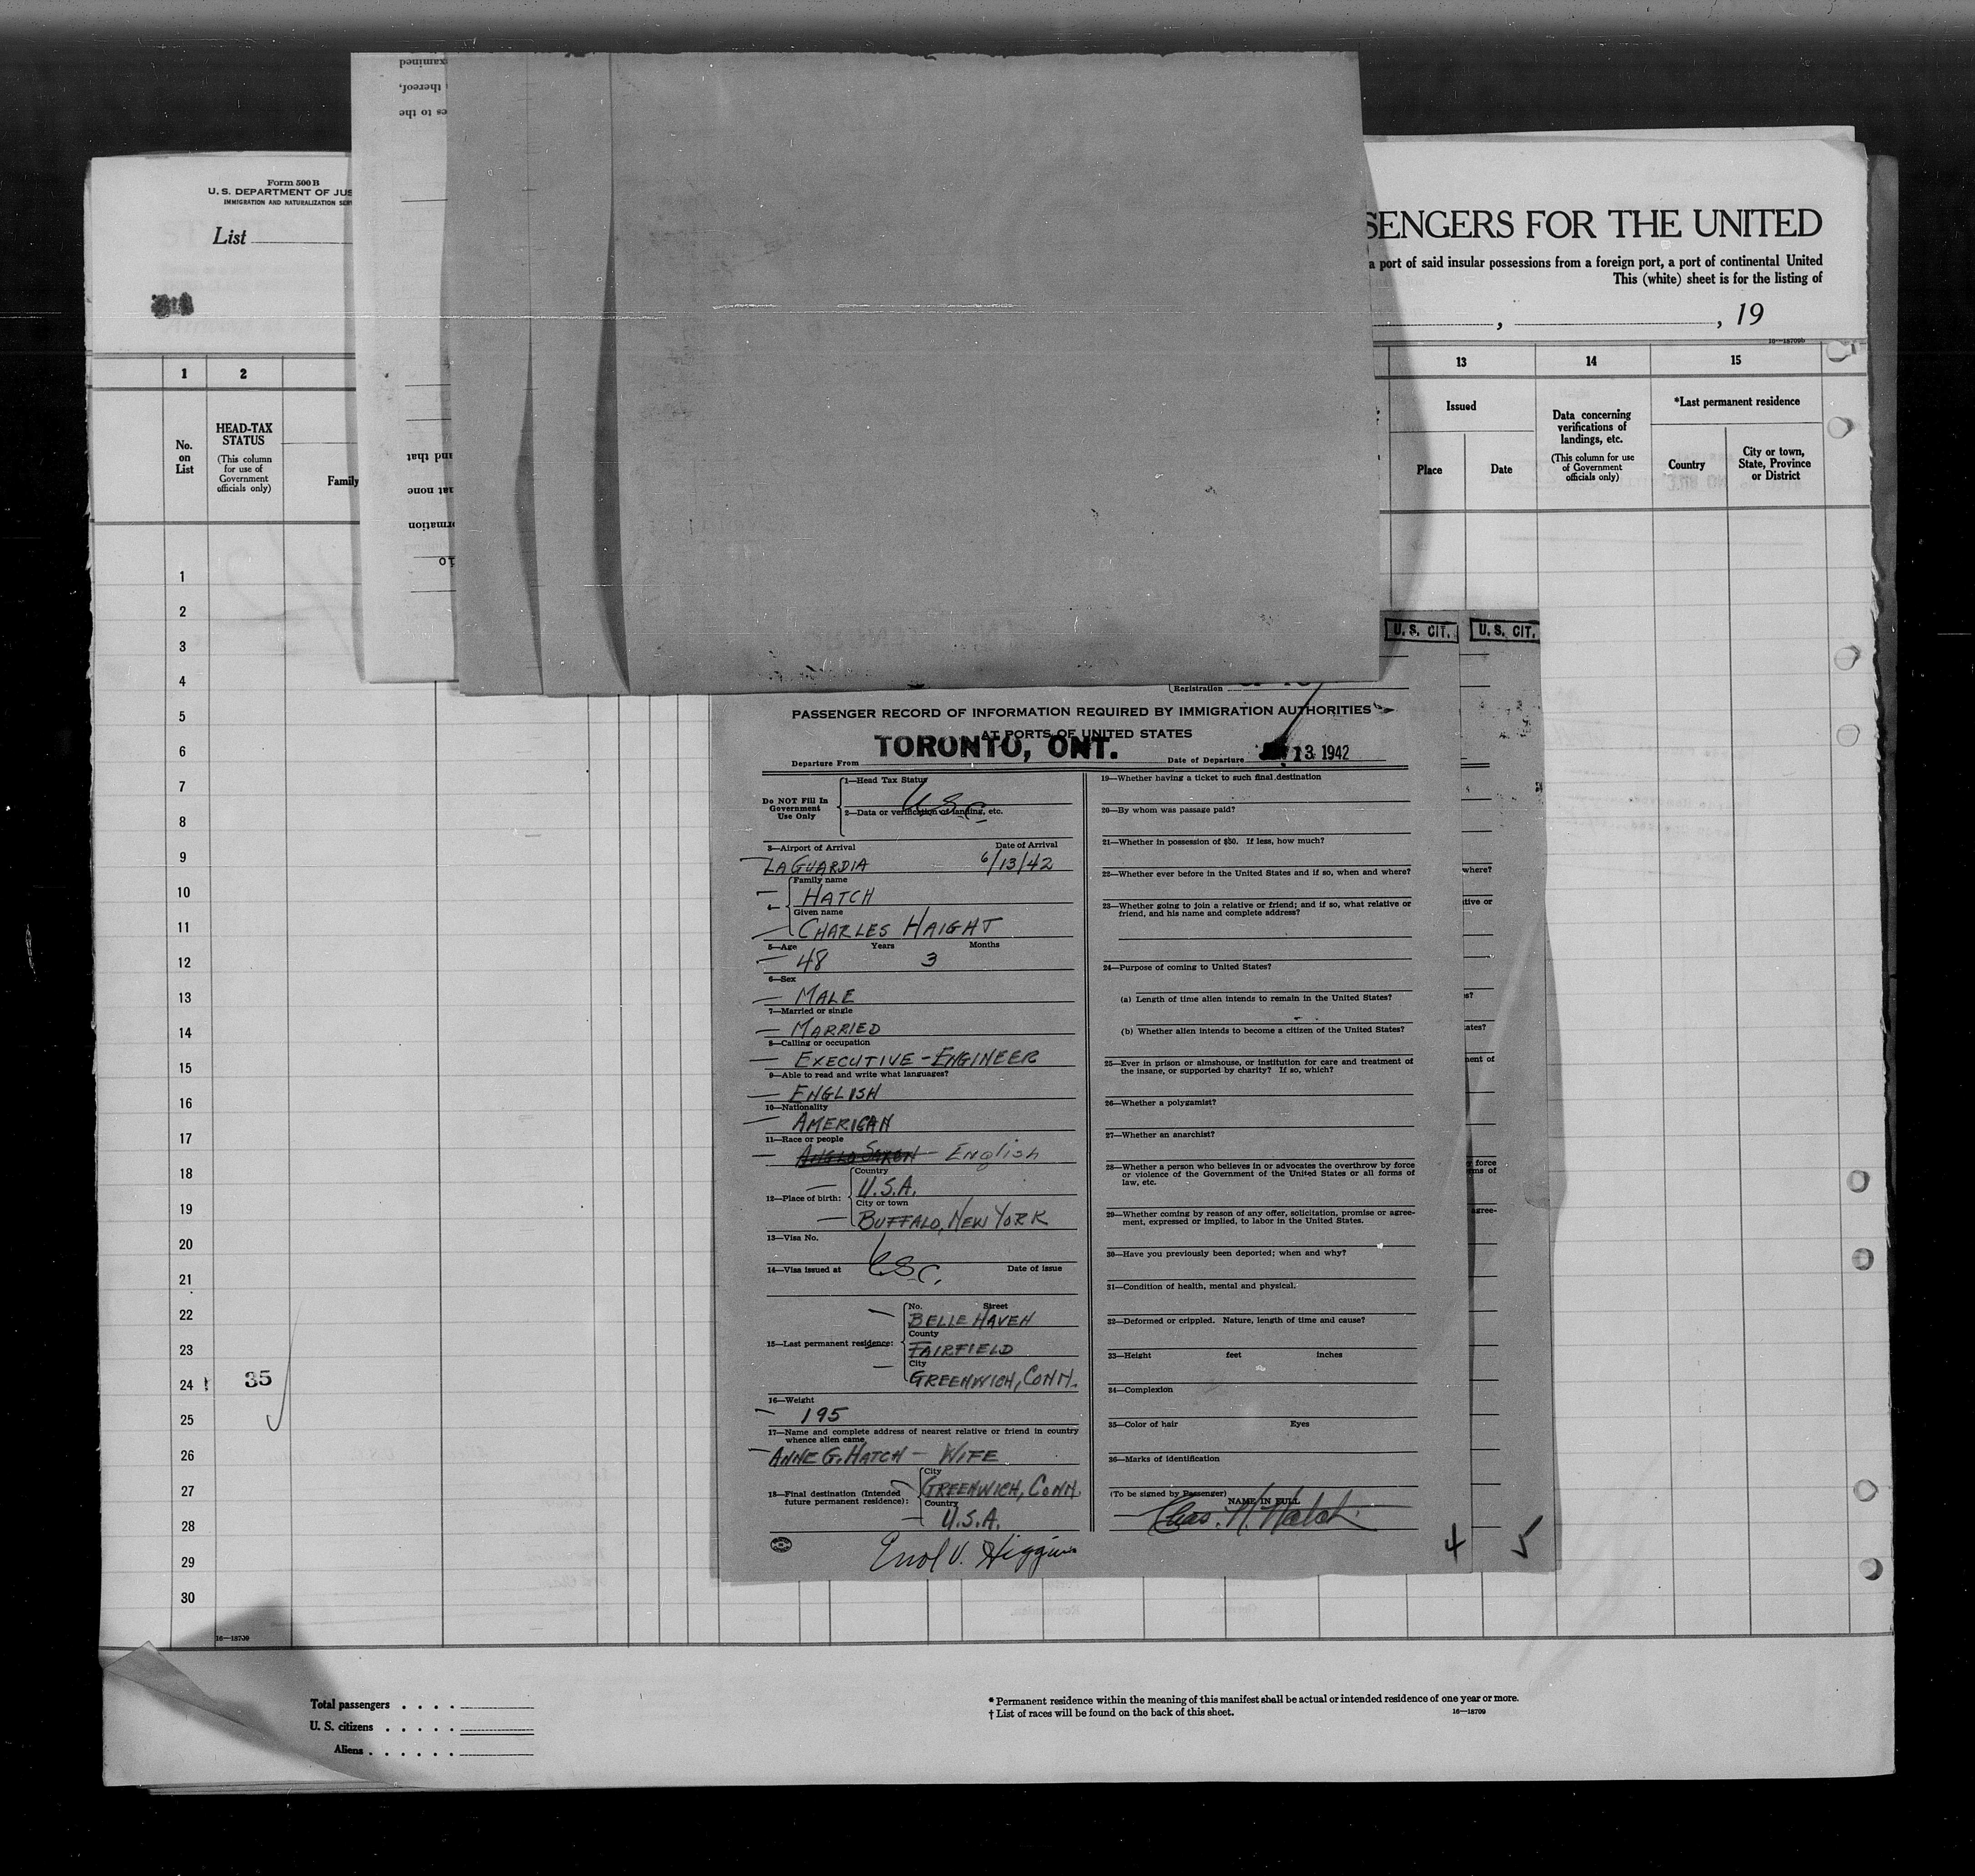 Form 500 B
U. S. DEPARTMENT OF JUS
IMMIGRATION AND NATURALIZATION SER
List
xamined
thereof,
es to the
nd that
at none
rmation
SENGERS FOR THE UNITED
a port of said insular possessions from a foreign port, a port of continental United
This (white) sheet is for the listing of
, , 19
16—18709b
1 2 13 14 15
No. on List
HEAD-TAX STATUS
(This column for use of Government officials only)
Family
Issued
Place Date
Data concerning verifications of landings, etc.
(This column for use of Government officials only)
*Last permanent residence
Country
City or town, State, Province or District
1
2
3
4
5
6
7
8
9
10
11
12
13
14
15
16
17
18
19
20
21
22
23
24 35
25
26
27
28
29
30
16—18709
U. S. CIT. U. S. CIT.
Registration
PASSENGER RECORD OF INFORMATION REQUIRED BY IMMIGRATION AUTHORITIES
AT PORTS OF UNITED STATES
Departure From TORONTO, ONT. Date of Departure 13 1942
Do NOT Fill In Government Use Only
1—Head Tax Status
USC
2—Data or verification of landing, etc.
3—Airport of Arrival Date of Arrival
LA GUARDIA 6/13/42
4—
Family name
HATCH
Given name
CHARLES HAIGHT
5—Age Years Months
48 3
6—Sex
MALE
7—Married or single
MARRIED
8—Calling or occupation
EXECUTIVE - ENGINEER
9—Able to read and write what languages?
ENGLISH
10—Nationality
AMERICAN
11—Race or people
ANGLO SAXON - English
12—Place of birth:
Country
U.S.A.
City or town
BUFFALO, NEW YORK
13—Visa No.
USC.
14—Visa issued at Date of issue
15—Last permanent residence:
No. Street
BELLE HAVEN
County
FAIRFIELD
City
GREENWICH, CONN.
16—Weight
195
17—Name and complete address of nearest relative or friend in country
whence alien came
ANNE G. HATCH - WIFE
18—Final destination (Intended
future permanent residence):
City
GREENWICH, CONN.
Country
U.S.A.
19—Whether having a ticket to such final destination
20—By whom was passage paid?
21—Whether in possession of $50. If less, how much?
22—Whether ever before in the United States and if so, when and where?
23—Whether going to join a relative or friend; and if so, what relative or
friend, and his name and complete address?
24—Purpose of coming to United States?
(a) Length of time alien intends to remain in the United States?
(b) Whether alien intends to become a citizen of the United States?
25—Ever in prison or almshouse, or institution for care and treatment of
the insane, or supported by charity? If so, which?
26—Whether a polygamist?
27—Whether an anarchist?
28—Whether a person who believes in or advocates the overthrow by force
or violence of the Government of the United States or all forms of
law, etc.
29—Whether coming by reason of any offer, solicitation, promise or agree-
ment, expressed or implied, to labor in the United States.
30—Have you previously been deported; when and why?
31—Condition of health, mental and physical.
32—Deformed or crippled. Nature, length of time and cause?
33—Height feet inches
34—Complexion
35—Color of hair Eyes
36—Marks of identification
(To be signed by Passenger)
NAME IN FULL
Chas. H. Hatch.
V. Higgins
4 5
where?
tive or
s?
ates?
ment of
force
rms of
agree-
Total passengers . . . .
U. S. citizens . . . . .
Aliens . . . . . .
* Permanent residence within the meaning of this manifest shall be actual or intended residence of one year or more.
† List of races will be found on the back of this sheet.
16—18709